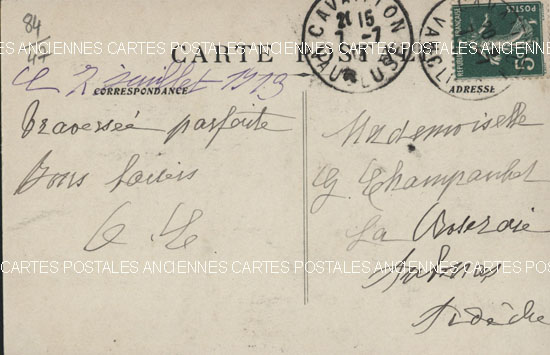 84
CARTE POSTALE
CAVAILLON
21 15
7 -7
VAUCLUSE
RÉPUBLIQUE FRANÇAISE
POSTES
5
ANCIENNES CARTES POSTALES ANCIENNES CARTES POSTALES ANCIENNES CARTES
le 7 juillet 1913
CORRESPONDANCE
ADRESSE
Traversée parfaite
Bons baisers
Mademoiselle
G. Champanhet
La Roseraie
Aubenas
Ardèche
CARTES POSTALES ANCIENNES CARTES POSTALES ANCIENNES CARTES POSTALES